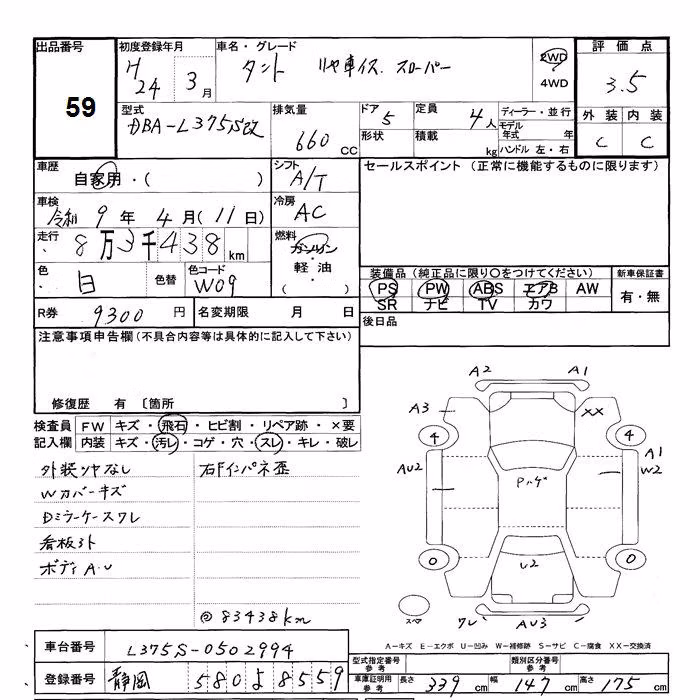 出品番号 59
初度登録年月 H24年 3月
車名・グレード タント リヤ車イス スローパー
2WD
4WD
評価点 3.5
型式 DBA-L375S改
排気量 660 CC
ドア 5
形状
定員 4人
積載 kg
ディーラー・並行
モデル年式 年
ハンドル 左・右
外装 内装
C C
車歴 自家用・( )
シフト A/T
セールスポイント (正常に機能するものに限ります)
車検 令和 9年 4月(11日)
冷房 AC
走行 8万3千438km
燃料 ガソリン・軽油・( )
色 白
色替
色コード W09
装備品(純正品に限り○をつけてください)
PS PW ABS エアB AW
SR ナビ TV カワ
新車保証書 有・無
R券 9300円
名変期限 月 日
後日品
注意事項申告欄(不具合内容等は具体的に記入して下さい)
修復歴 有 〔箇所 〕
検査員記入欄
FW キズ・飛石・ヒビ割・リペア跡・×要
内装 キズ・汚レ・コゲ・穴・スレ・キレ・破レ
外装ツヤなし 右Fインパネ歪
Wカバーキズ
Dミラーケースワレ
看板3ト
ボディA.U
@83438km
A2 A1
A3 XX
4 4
A1
AU2 W2
U2
0 0
スペア
ワレ AU3
A-キズ E-エクボ U-凹み W-補修跡 S-サビ C-腐食 XX-交換済
車台番号 L375S-0502994
型式指定番号 参考
類別区分番号 参考
登録番号 静岡 580 よ 8559
車庫証明用 参考 長さ 339cm 幅 147cm 高さ 175cm